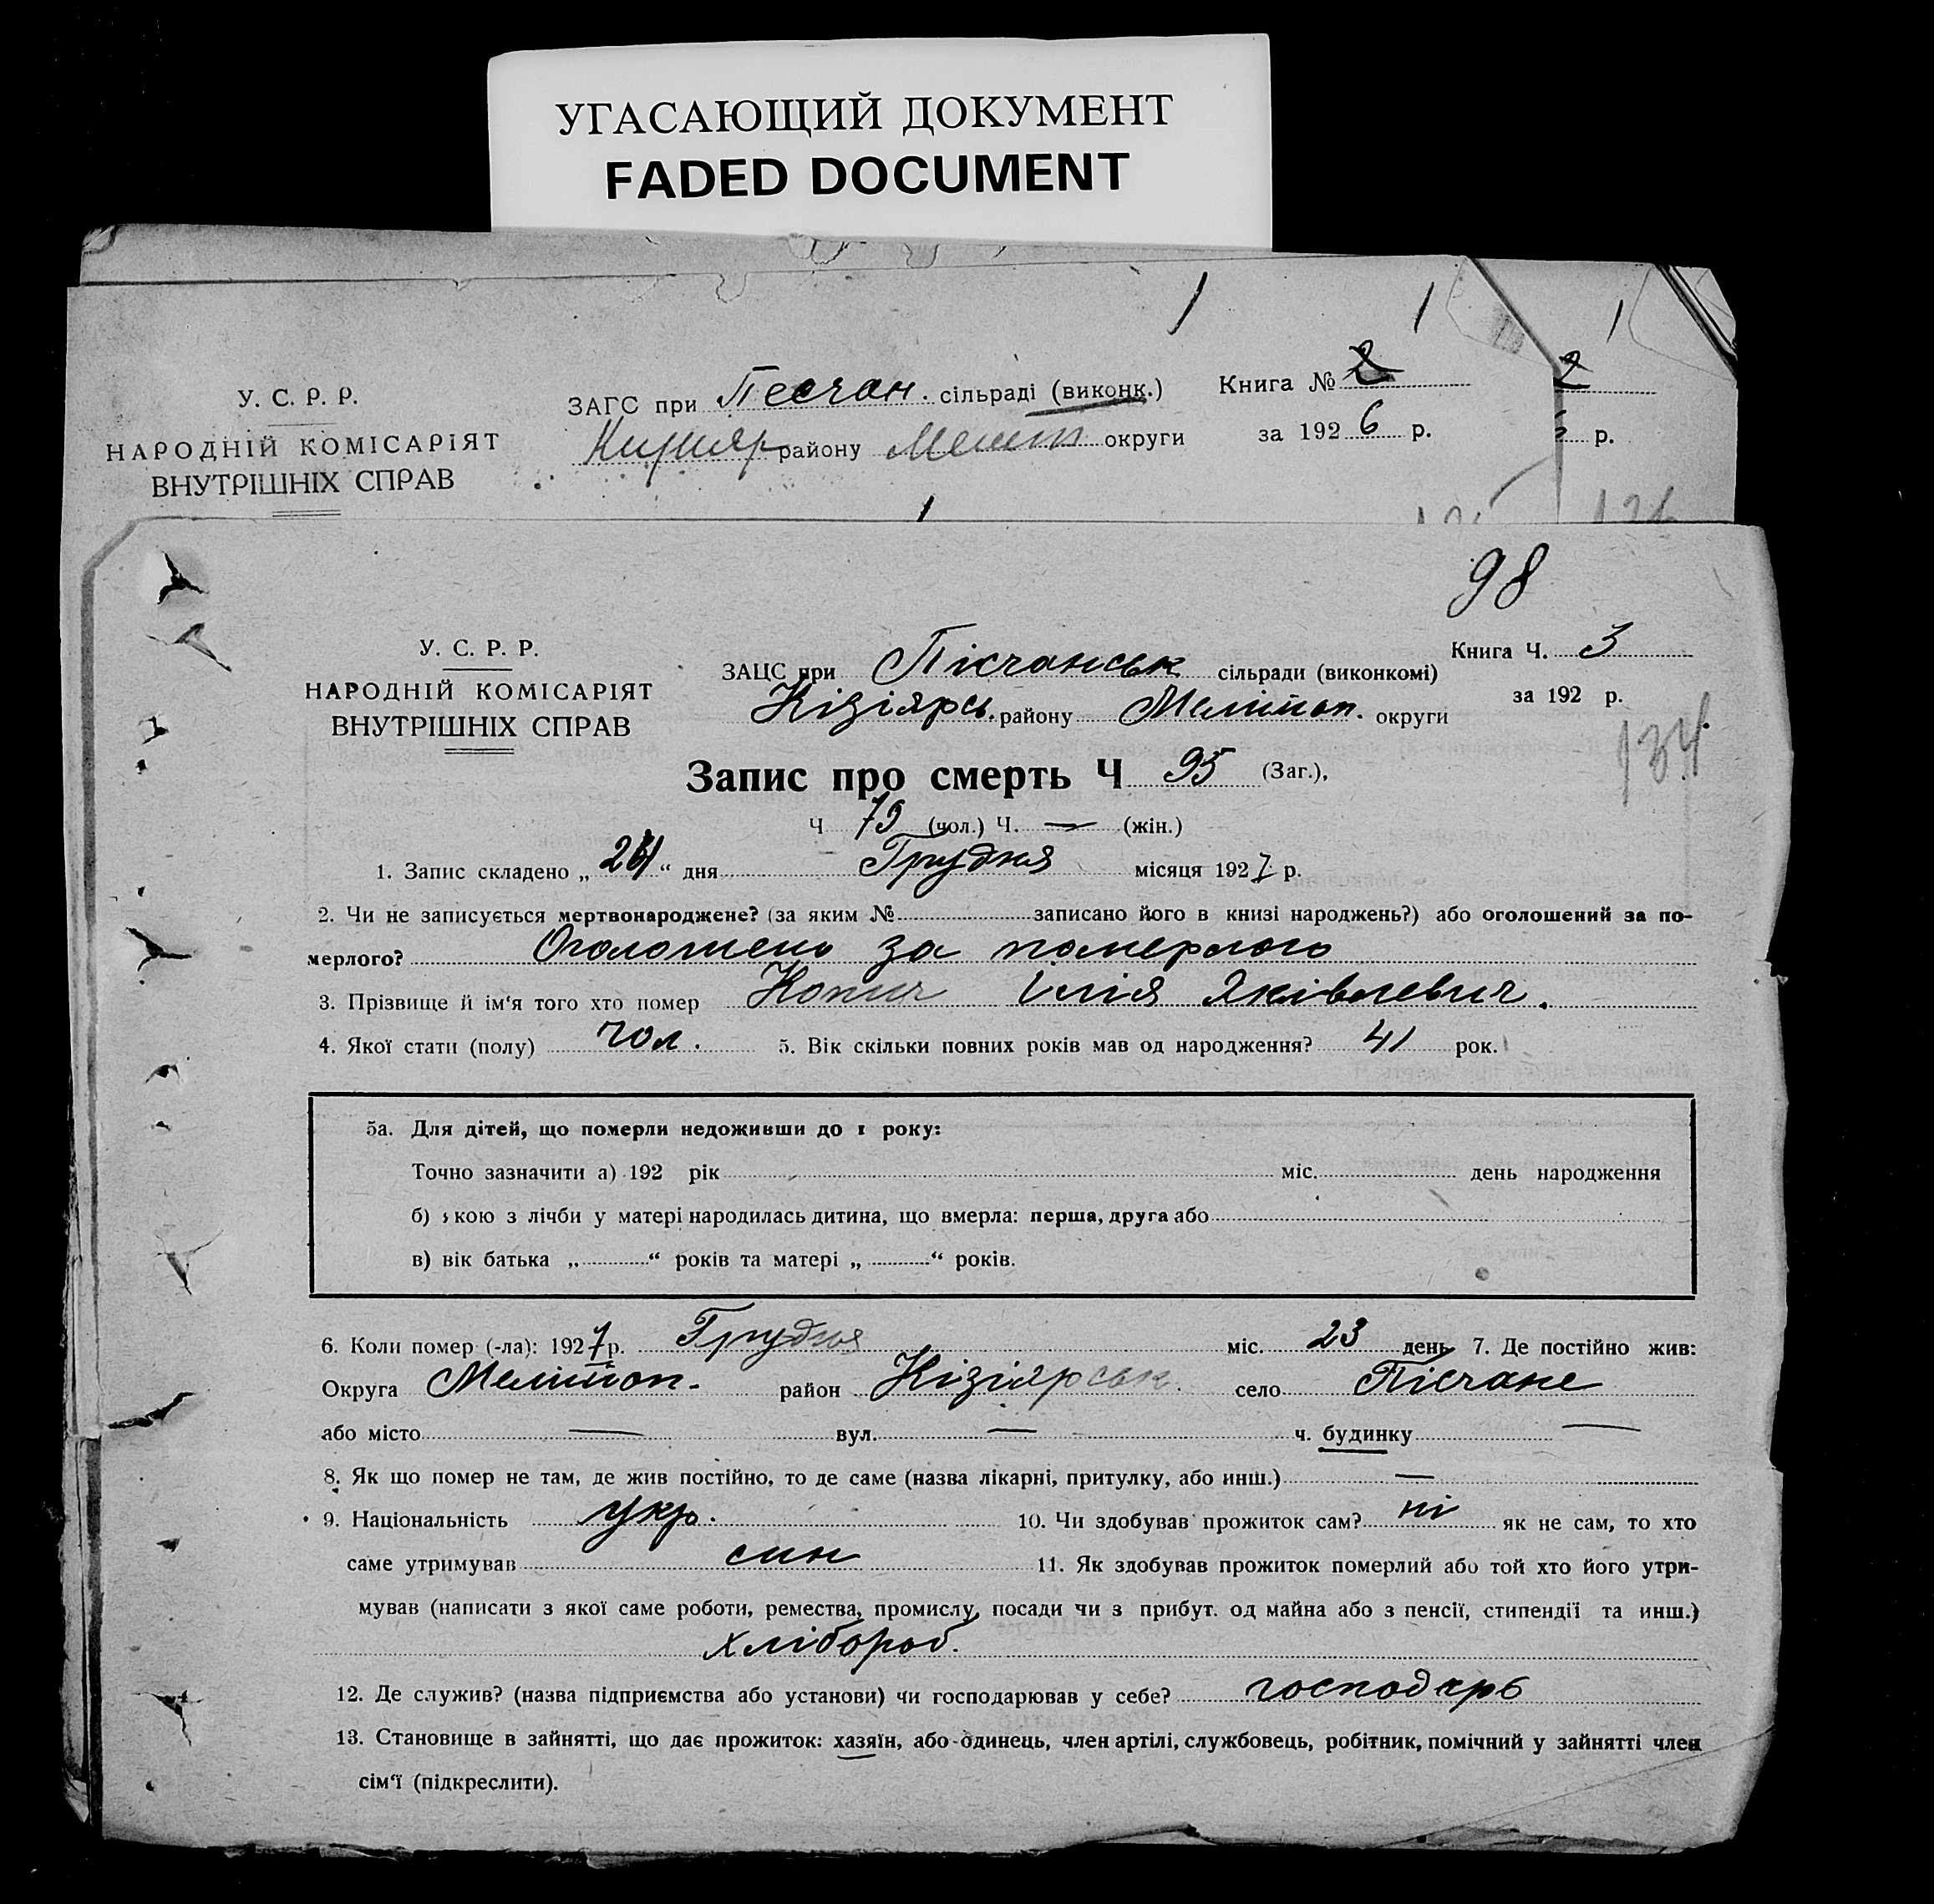 УГАСАЮЩИЙ ДОКУМЕНТ
FADED DOCUMENT
1 1 1
У. С. Р. Р.
НАРОДНІЙ КОМІСАРІЯТ
ВНУТРІШНІХ СПРАВ
ЗАГС при Песчан. сільраді (виконк.)
району Мелит округи
Книга № 2
за 1926 р.
2
р.
1
98
У. С. Р. Р.
НАРОДНІЙ КОМІСАРІЯТ
ВНУТРІШНІХ СПРАВ
ЗАЦС при Пісчанськ сільради (виконкомі)
Кізіярсь. району Мелітоп. округи
Книга Ч. 3
за 192 р.
134
Запис про смерть Ч 95 (Заг.),
Ч 79 (чол.) Ч. — (жін.)
1. Запис складено „ “ дня Грудня місяця 1927 р.
2. Чи не записується мертвонароджене? (за яким № записано його в книзі народжень?) або оголошений за по-
мерлого? Оголошено за померлого
3. Прізвище й ім‘я того хто помер Копич Ілія Яківлевич.
4. Якої стати (полу) чол. 5. Вік скільки повних років мав од народження? 41 рок.
5а. Для дітей, що померли недоживши до 1 року:
Точно зазначити а) 192 рік міс. день народження
б) якою з лічби у матері народилась дитина, що вмерла: перша, друга або
в) вік батька „ “ років та матері „ “ років.
6. Коли помер (-ла): 1927 р. Грудня міс. 23 день 7. Де постійно жив:
Округа Мелітоп. район Кізіярськ. село Пісчане
або місто — вул. — ч. будинку —
8. Як що помер не там, де жив постійно, то де саме (назва лікарні, притулку, або инш.) —
9. Національність укр. 10. Чи здобував прожиток сам? ні як не сам, то хто
саме утримував син 11. Як здобував прожиток померлий або той хто його утри-
мував (написати з якої саме роботи, ремества, промислу, посади чи з прибут. од майна або з пенсії, стипендії та инш.)
хлібороб.
12. Де служив? (назва підприємства або установи) чи господарював у себе? господарь
13. Становище в зайнятті, що дає прожиток: хазяїн, або одинець, член артілі, службовець, робітник, помічний у зайнятті член
сім‘ї (підкреслити).